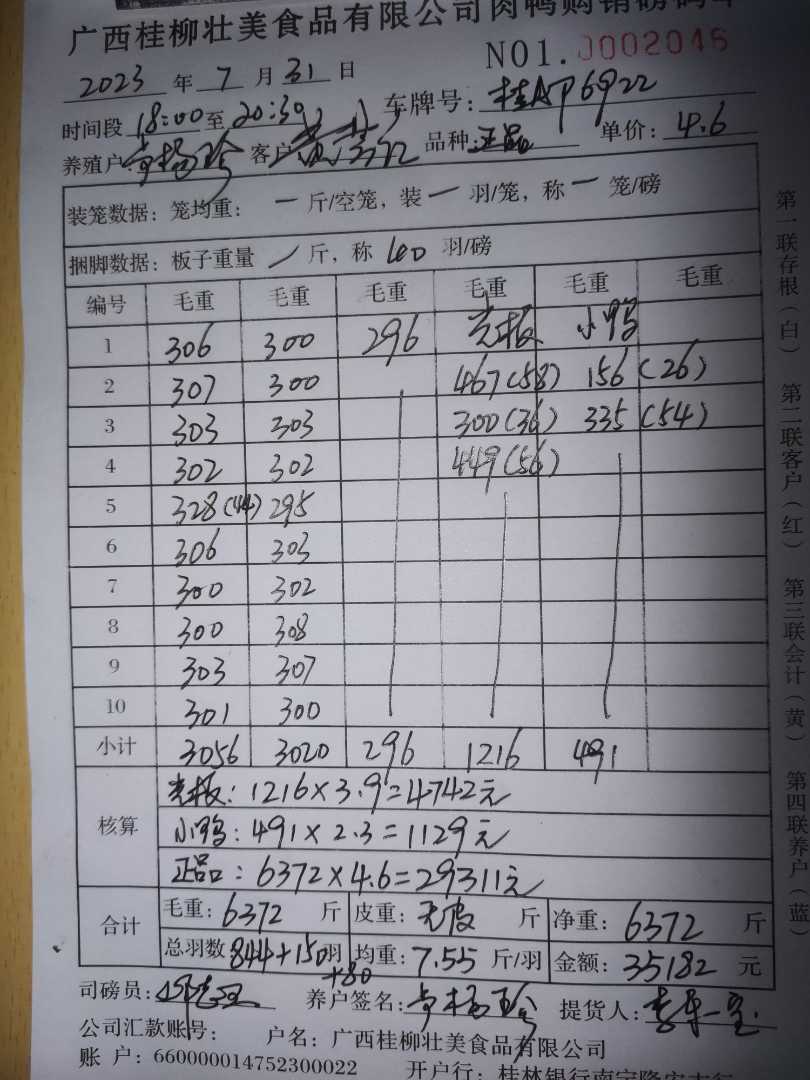 广西桂柳壮美食品有限公司肉鸭购销磅码单
NO1.0002046
2023 年 7 月 31 日
时间段 18:00 至 20:30 车牌号: 桂AP6922
养殖户 客户 品种: 正品 单价: 4.6
装笼数据: 笼均重: 一 斤/空笼, 装 一 羽/笼, 称 一 笼/磅
捆脚数据: 板子重量 / 斤, 称 100 羽/磅
编号 毛重 毛重 毛重 毛重 毛重 毛重
1 306 300 296 光板 小鸭
2 307 300 467(58) 156(26)
3 303 303 300(36) 335(54)
4 302 302 449(56)
5 328(44) 295
6 306 303
7 300 302
8 300 308
9 303 307
10 301 300
小计 3056 3020 296 1216 491
核算 光板: 1216×3.9=4742元
小鸭: 491×2.3=1129元
正品: 6372×4.6=29311元
合计 毛重: 6372 斤 皮重: 无皮 斤 净重: 6372 斤
总羽数 844+150羽 +80 均重: 7.55 斤/羽 金额: 35182 元
司磅员: 养户签名: 提货人:
公司汇款账号: 户名: 广西桂柳壮美食品有限公司
账 户: 660000014752300022 开户行: 桂林银行南宁隆安支行
第一联存根(白) 第二联客户(红) 第三联会计(黄) 第四联养户(蓝)